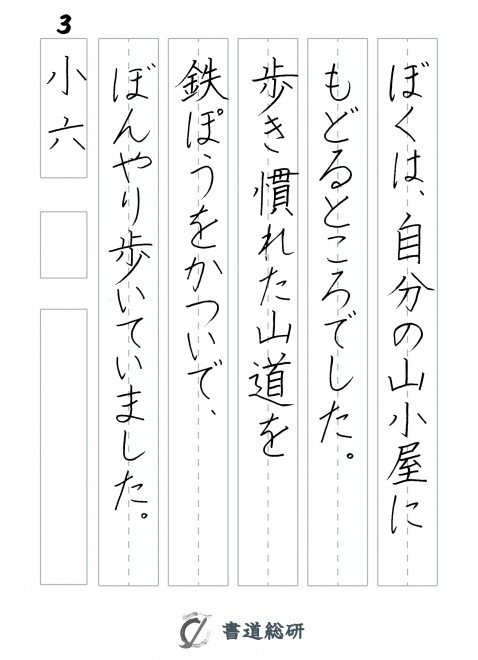 3
ぼくは、自分の山小屋に
もどるところでした。
歩き慣れた山道を
鉄ぽうをかついで、
ぼんやり歩いていました。
小六
書道総研